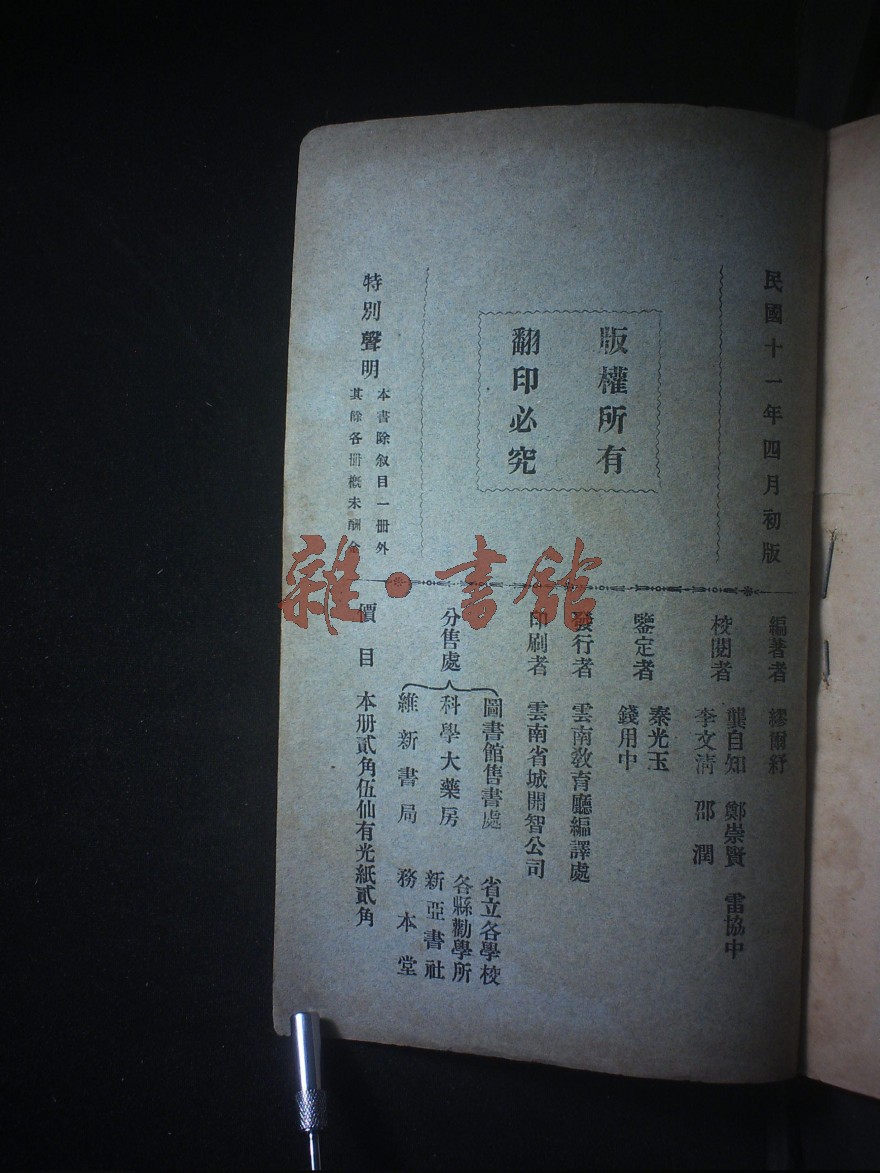 民國十一年四月初版
版權所有
翻印必究
特別聲明
本書除叙目一册外
其餘各册概未酬金
編著者 繆爾紓
校閱者 龔自知 鄭崇賢 雷協中
李文清 邵潤
鑒定者 秦光玉
錢用中
發行者 雲南教育廳編譯處
印刷者 雲南省城開智公司
分售處
圖書館售書處 省立各學校
科學大藥房 各縣勸學所
新亞書社
維新書局 務本堂
價目 本册貳角伍仙有光紙貳角
雜·書館